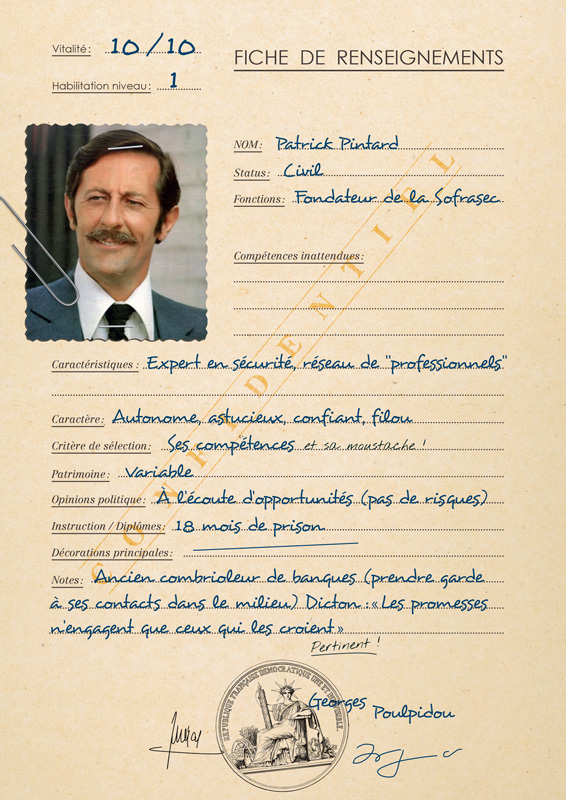 Vitalité : 10/10
FICHE DE RENSEIGNEMENTS
Habilitation niveau : 1
NOM : Patrick Pintard
Status : Civil
Fonctions : Fondateur de la Sofrasec
Compétences inattendues :
CONFIDENTIEL
Caractéristiques : Expert en sécurité, réseau de "professionnels"
Caractère : Autonome, astucieux, confiant, filou
Critère de sélection : Ses compétences et sa moustache !
Patrimoine : Variable
Opinions politique : À l'écoute d'opportunités (pas de risques)
Instruction / Diplômes : 18 mois de prison
Décorations principales :
Notes : Ancien combrioleur de banques (prendre garde
à ses contacts dans le milieu) Dicton : « Les promesses
n'engagent que ceux qui les croient »
Pertinent !
REPUBLIQUE FRANÇAISE DEMOCRATIQUE UNE ET INDIVISIBLE.
Georges
Poulpidou